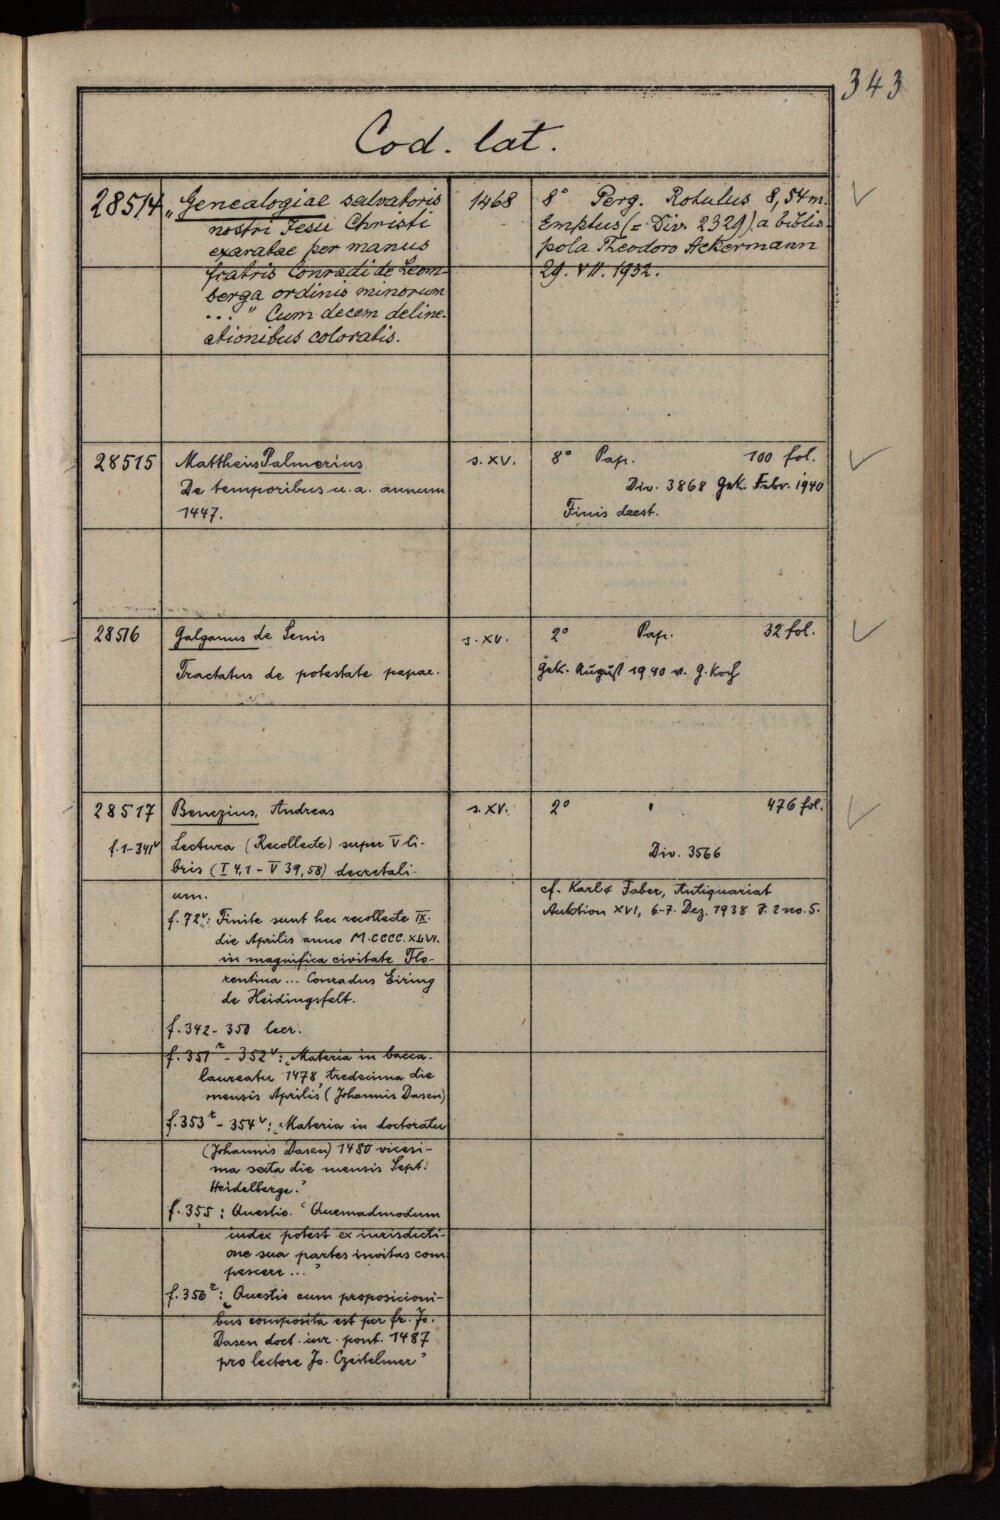 343
Cod. lat.
28514 „Genealogiae salvatoris 1468 8° Perg. Rotulus 8,54 m.
nostri Jesu Christi Emptus (= Div. 2329) a biblio-
exaratae per manus pola Theodoro Ackermann
fratris Conradi de Leom- 29. VII. 1932.
berga ordinis minorum
..." Cum decem deline-
ationibus coloratis.
28515 Mattheus Palmerius s. XV. 8° Pap. 100 fol.
De temporibus u. a. annum Div. 3868 Gek. Febr. 1940
1447. Finis deest.
28516 Galganus de Senis s. XV. 2° Pap. 32 fol.
Tractatus de potestate papae. Gek. August 1940 v. G. Koch
28517 Benezius, Andreas s. XV. 2° " 476 fol.
f. 1-341v Lectura (Recollecte) super V li- Div. 3566
bris (I 4,1 - V 39,58) decretali-
um. cf. Karl & Faber, Antiquariat
f. 72v: Finite sunt hec recollecte IX. Auktion XVI, 6-7. Dez. 1938 S. 2 no. 5.
die Aprilis anno M.CCCC.XLVI.
in magnifica civitate Flo-
rentina ... Conradus Eiring
de Heidingsfelt.
f. 342 - 350 leer.
f. 351r - 352v: „Materia in bacca-
laureatu 1478 tredecima die
mensis Aprilis" (Johannis Dasen)
f. 353r - 354v: „Materia in doctoratu
(Johannis Dasen) 1480 vicesi-
ma sexta die mensis Sept.
Heidelberge."
f. 355: Questio. "Quemadmodum
iudex potest ex iurisdicti-
one sua partes invitas com
pescere ..."
f. 356r: „Questio cum proposicioni-
bus composita est per fr. Jo.
Dasen doct. iur. pont. 1487
pro lectore Jo. Czeitelmer"